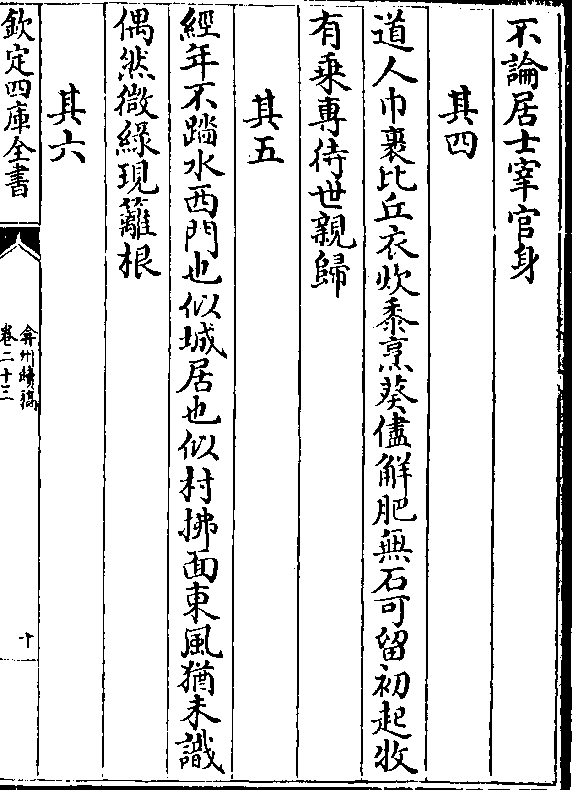 不論居士宰官身
其四
道人巾裹比丘衣炊黍烹葵儘解肥無石可留初起牧
有乗専待世親歸
其五
經年不踏水西門也似城居也似村拂面東風猶未識
偶然微緑現籬根
其六
欽定四庫全書
弇州續稿
卷二十三
十